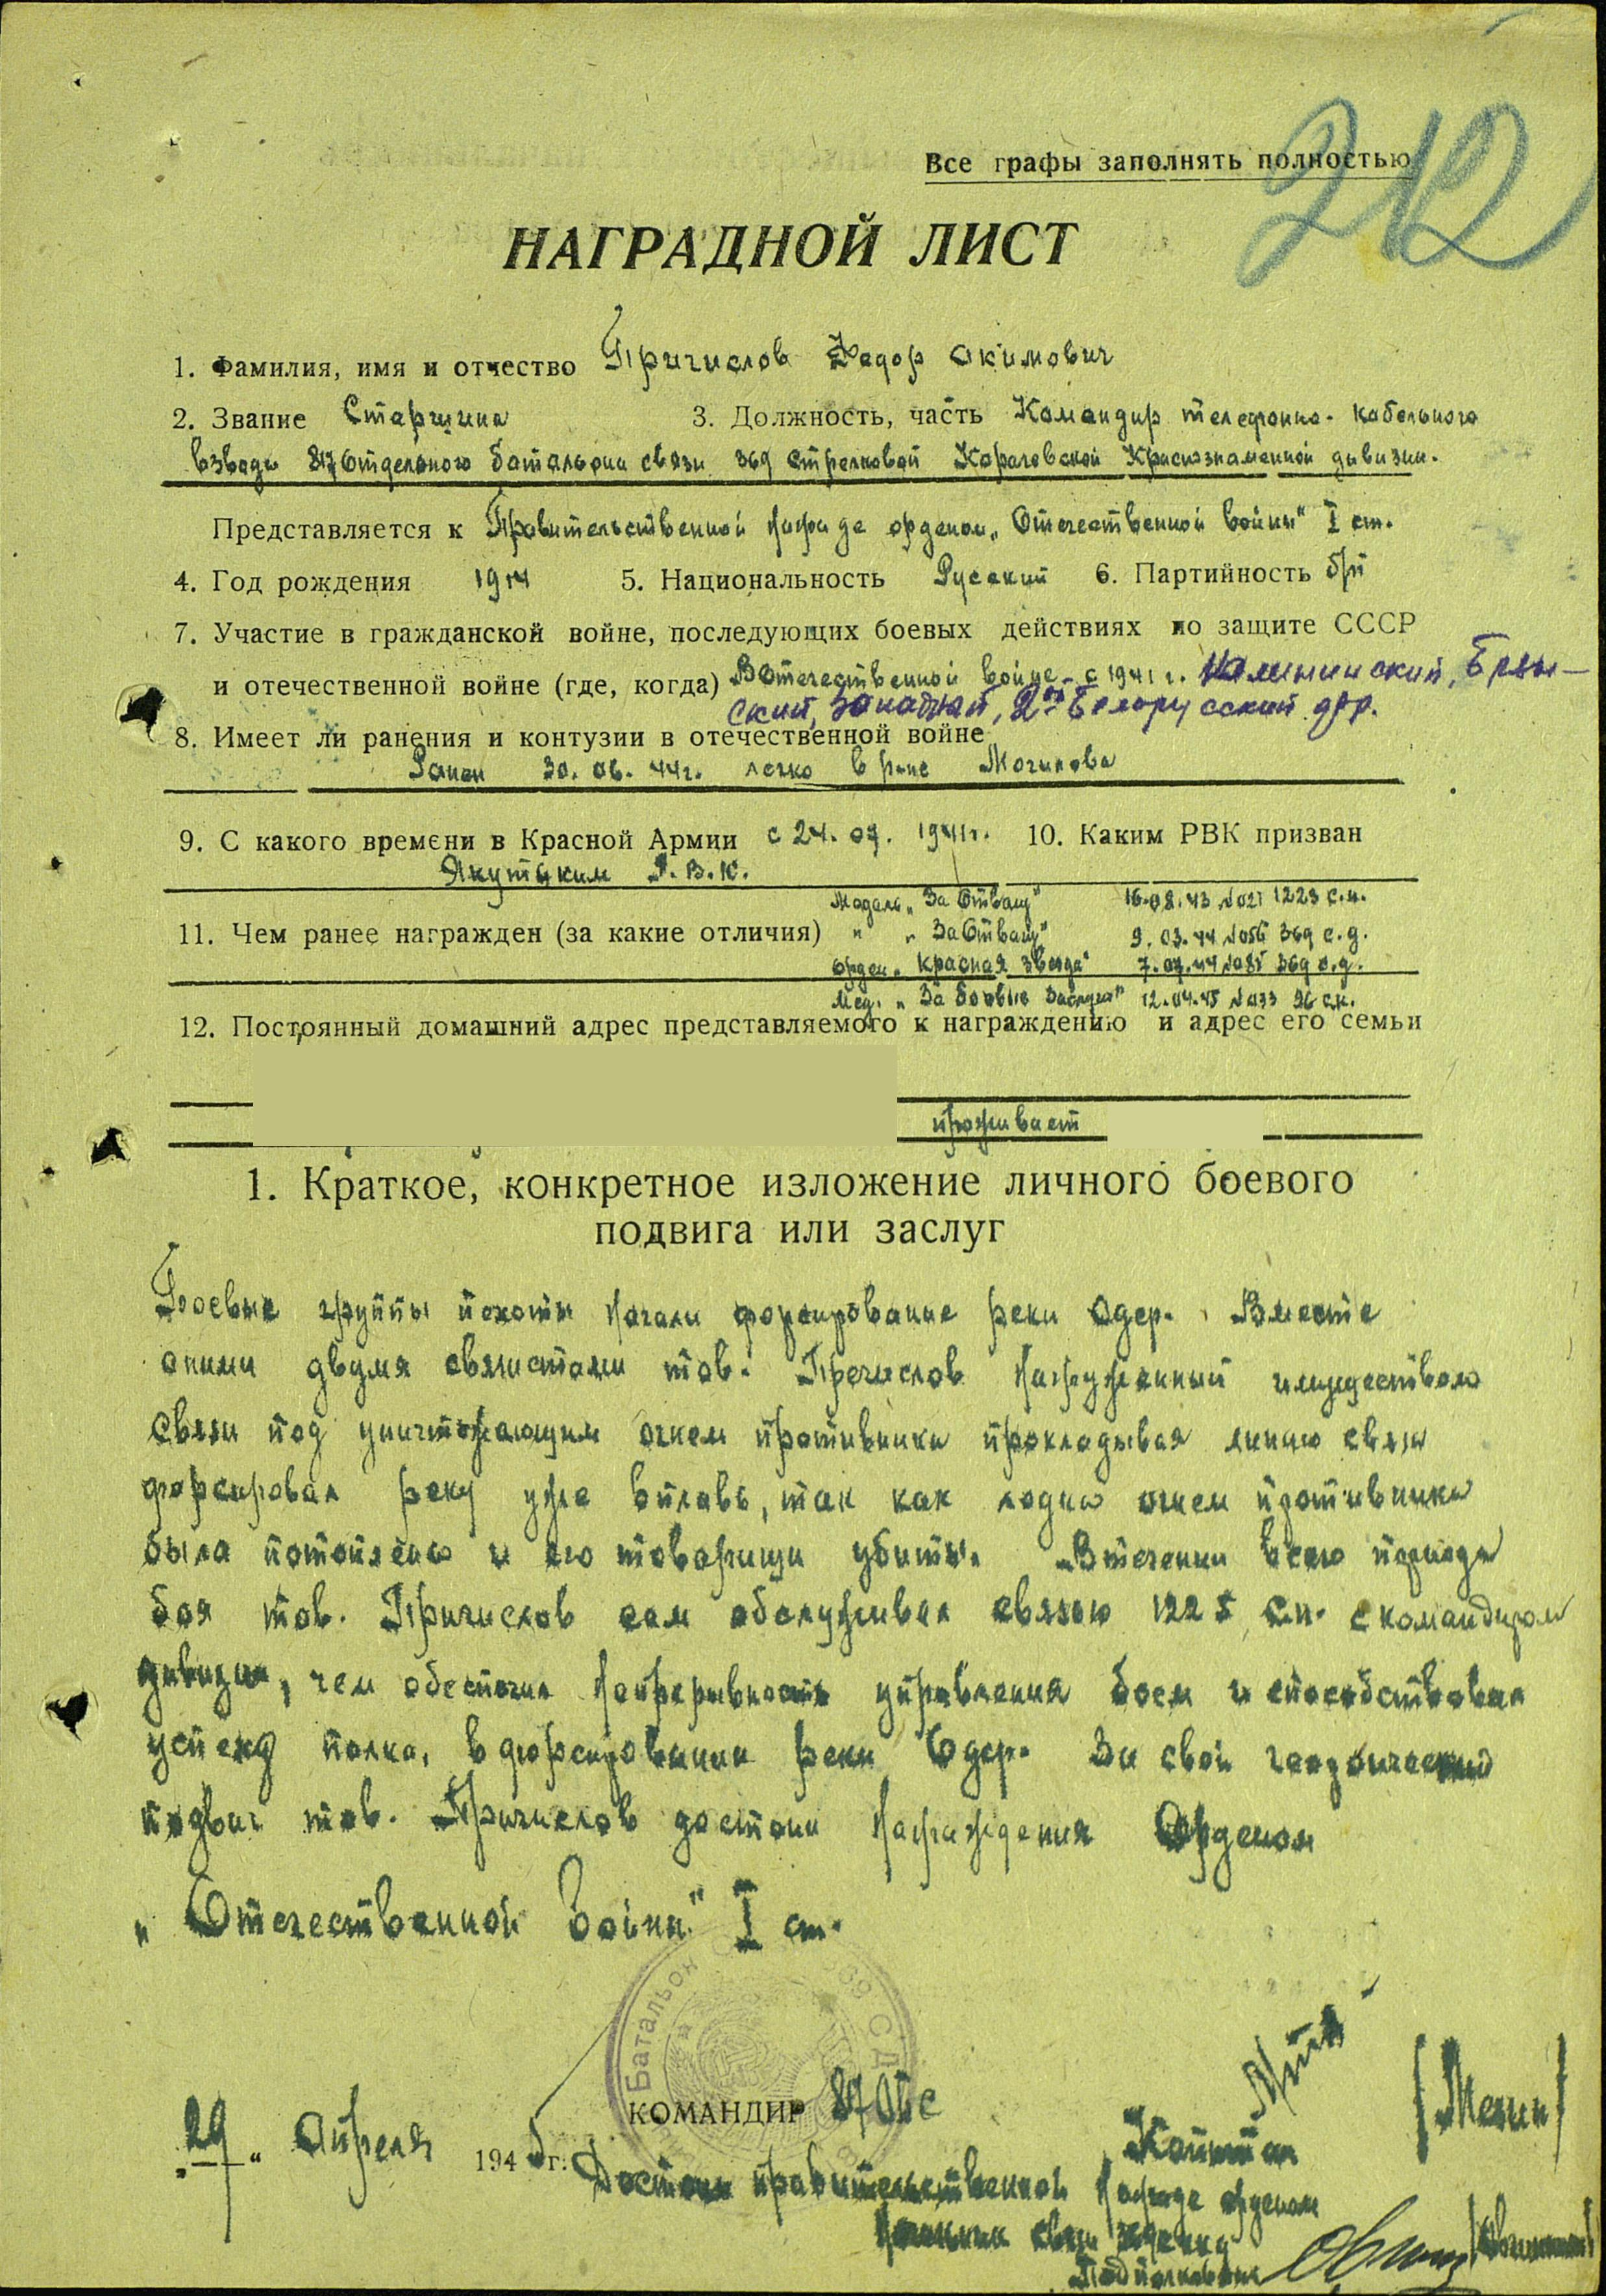 212
Все графы заполнять полностью
НАГРАДНОЙ ЛИСТ
1. Фамилия, имя и отчество Причислов Федор Акимович
2. Звание Старшина 3. Должность, часть Командир телефонно-кабельного
взвода 817 отдельного батальона связи 369 стрелковой Карачевской Краснознаменной дивизии.
Представляется к Правительственной награде орденом „Отечественной войны" I ст.
4. Год рождения 1914 5. Национальность Русский 6. Партийность б/п
7. Участие в гражданской войне, последующих боевых действиях по защите СССР
и отечественной войне (где, когда) В Отечественной войне с 1941 г. Калининский, Брян-
ский, Западный, 2ой Белорусский фр.
8. Имеет ли ранения и контузии в отечественной войне
Ранен 30.06.44г. легко в р-не Могилева
9. С какого времени в Красной Армии с 24.07. 1941г. 10. Каким РВК призван
Якутским Р.В.К.
Медаль „За Отвагу" 16.08.43 №021 1223 с.п.
11. Чем ранее награжден (за какие отличия) " „За Отвагу" 9.03.44 №056 369 с.д.
Орден „Красная Звезда" 7.07.44 №085 369 с.д.
Мед. „За боевые заслуги" 12.04.45 №033 96 с.к.
12. Постоянный домашний адрес представляемого к награждению и адрес его семьи
проживает
1. Краткое, конкретное изложение личного боевого
подвига или заслуг
Боевые группы пехоты начали форсирование реки Одер. Вместе
с ними двумя связистами тов. Пречислов нагруженный имуществом
связи под уничтожающим огнем противника прокладывая линию связи
форсировал реку уже вплавь, так как лодка огнем противника
была потоплена и его товарищи убиты. В течении всего периода
боя тов. Причислов сам обслуживал связью 1225 с.п. с командиром
дивизии, чем обеспечил непрерывность управления боем и способствовал
успеху полка, в форсировании реки Одер. За свой героический
подвиг тов. Причислов достоин награждения Орденом
„Отечественной Войны" I ст.
Батальон 369 С.Д.
КОМАНДИР 817 ОБС
„29" Апреля 1945 г.
Капитан
Достоин правительственной награде орденом
Начальник связи 369 с.д.
Подполковник